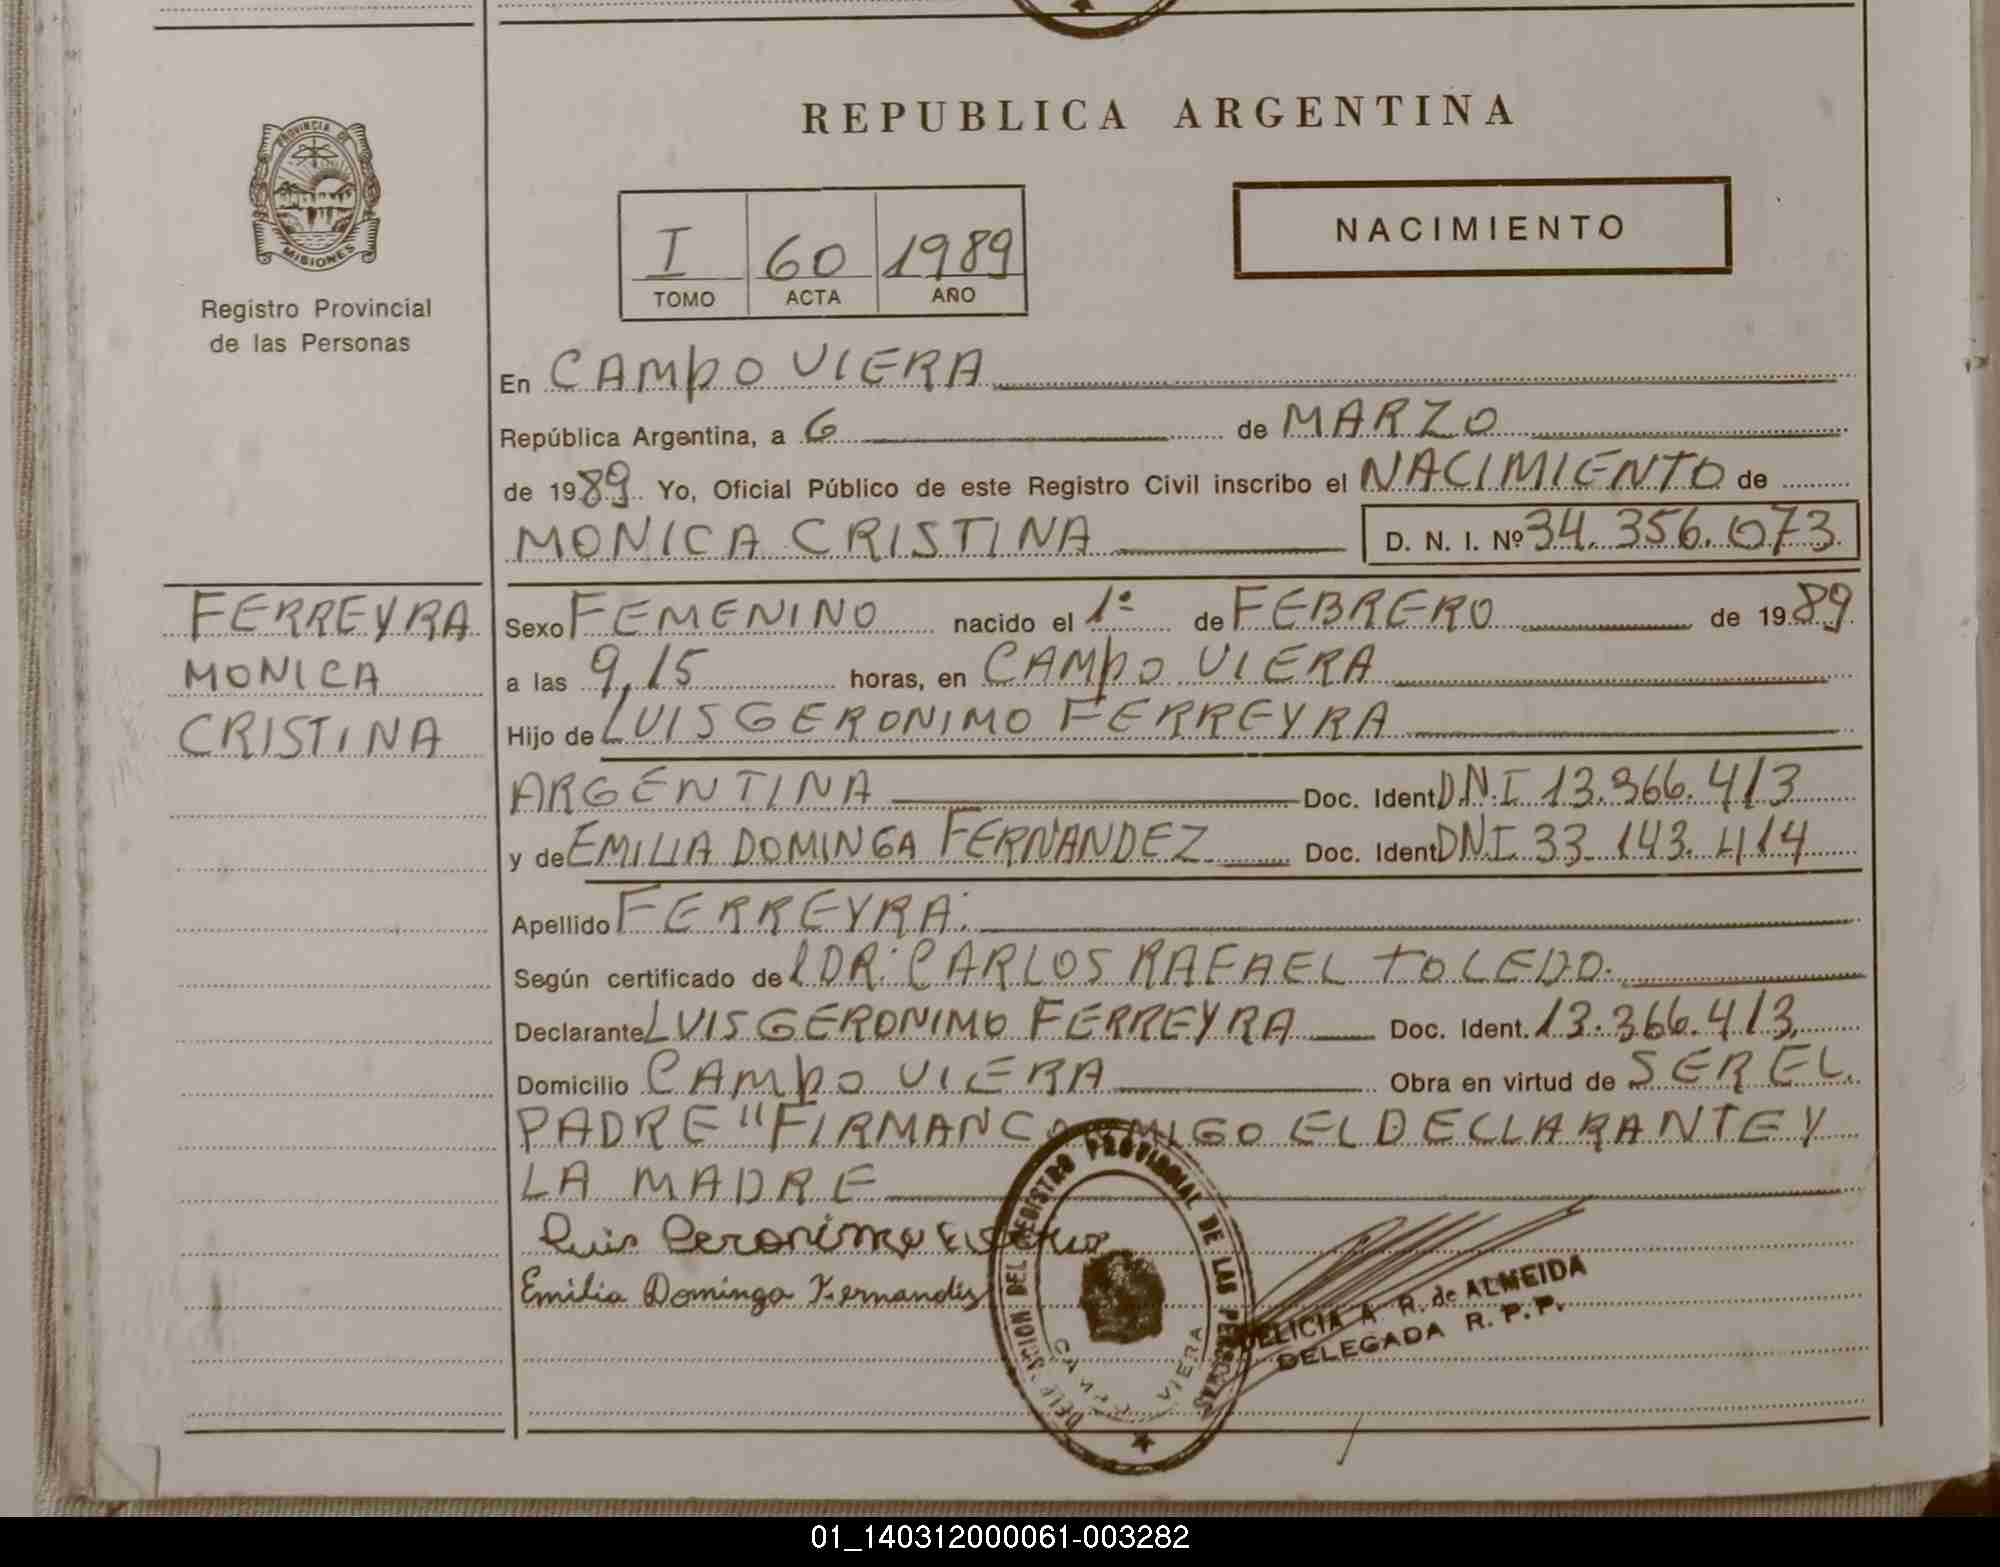 REPUBLICA ARGENTINA
PROVINCIA DE
MISIONES
Registro Provincial
de las Personas
I 60 1989
TOMO ACTA AÑO
NACIMIENTO
En CAMPO VIERA
República Argentina, a 6 de MARZO
de 1989 Yo, Oficial Público de este Registro Civil inscribo el NACIMIENTO de
MONICA CRISTINA D. N. I. Nº 34.356.073
FERREYRA
MONICA
CRISTINA
Sexo FEMENINO nacido el 1º de FEBRERO de 1989
a las 9,15 horas, en CAMPO VIERA
Hijo de LUIS GERONIMO FERREYRA
ARGENTINA Doc. Ident D.N.I 13.366.413
y de EMILIA DOMINGA FERNANDEZ Doc. Ident DNI. 33.143.414
Apellido FERREYRA.
Según certificado del DR. CARLOS RAFAEL TOLEDO.
Declarante LUIS GERONIMO FERREYRA Doc. Ident. 13.366.413
Domicilio CAMPO VIERA Obra en virtud de SER EL
PADRE "FIRMAN CONMIGO EL DECLARANTE Y
LA MADRE
Luis Geronimo
Emilia Dominga Fernandez
DEL REGISTRO PROVINCIAL DE LAS PERSONAS
CAMPO VIERA
DELICIA A. R. de ALMEIDA
DELEGADA R. P. P.
01_140312000061-003282